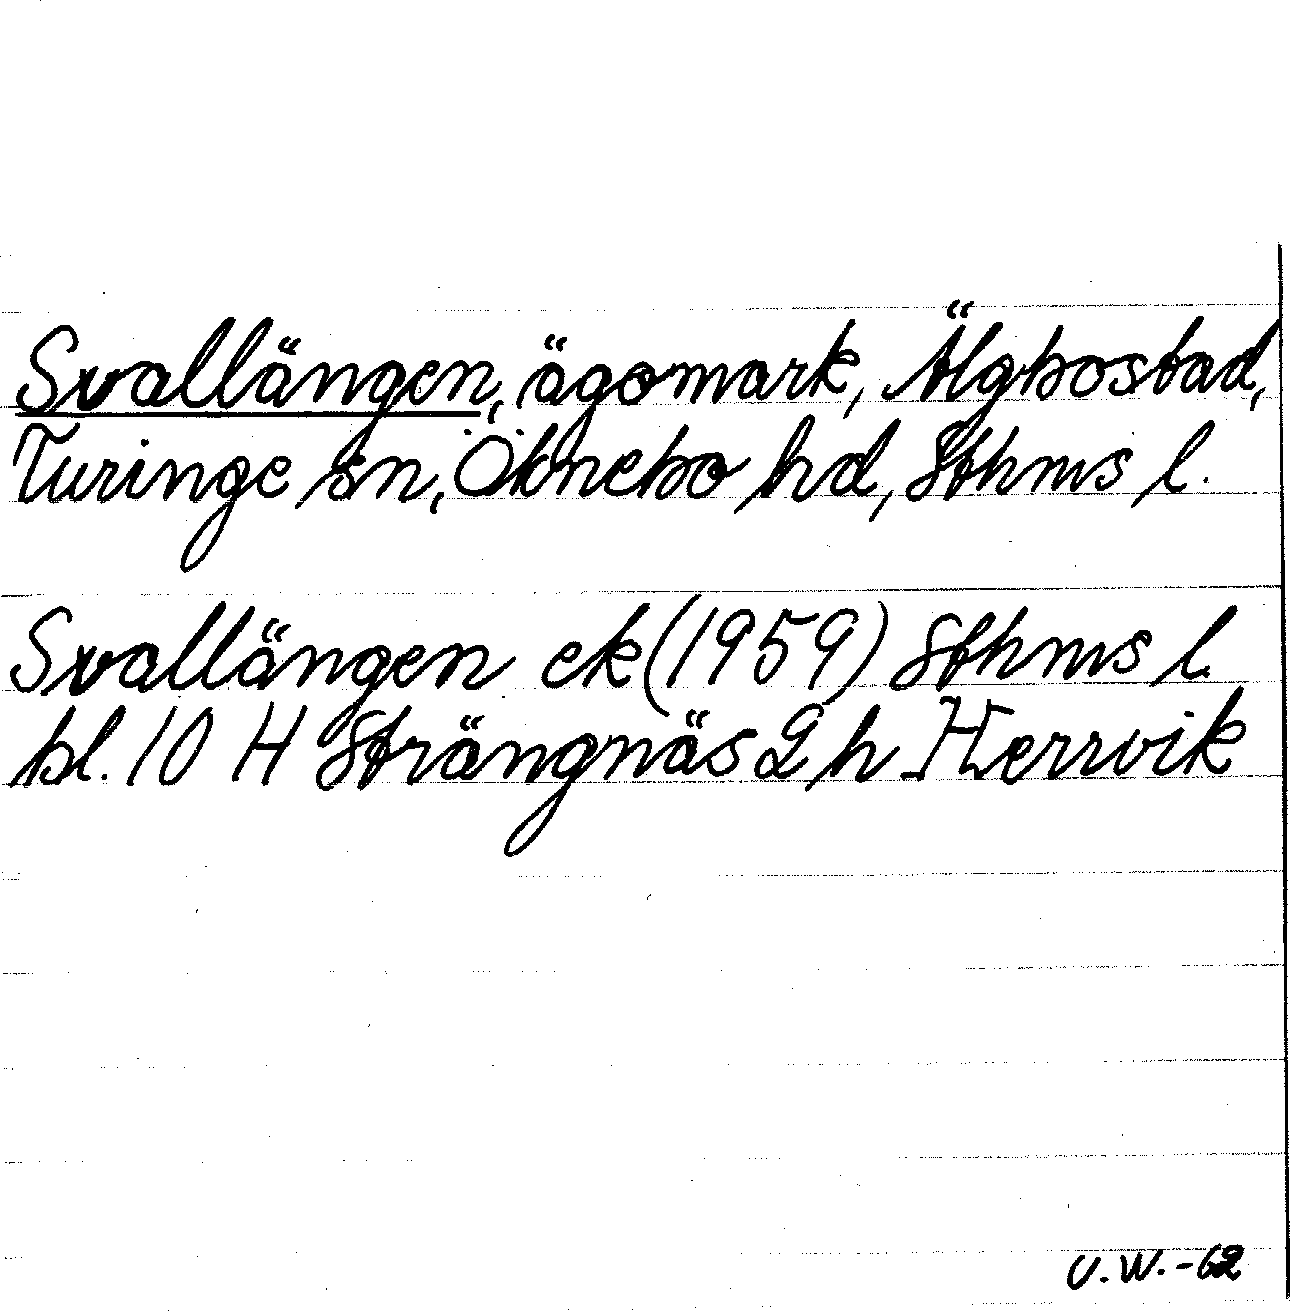 Svallängen, ägomark, Älgbostad,
Turinge sn, Öknebo hd, Sthms l.
Svallängen ek (1959) Sthms l.
bl. 10 H Strängnäs 2 h Herrvik
U.W.-62